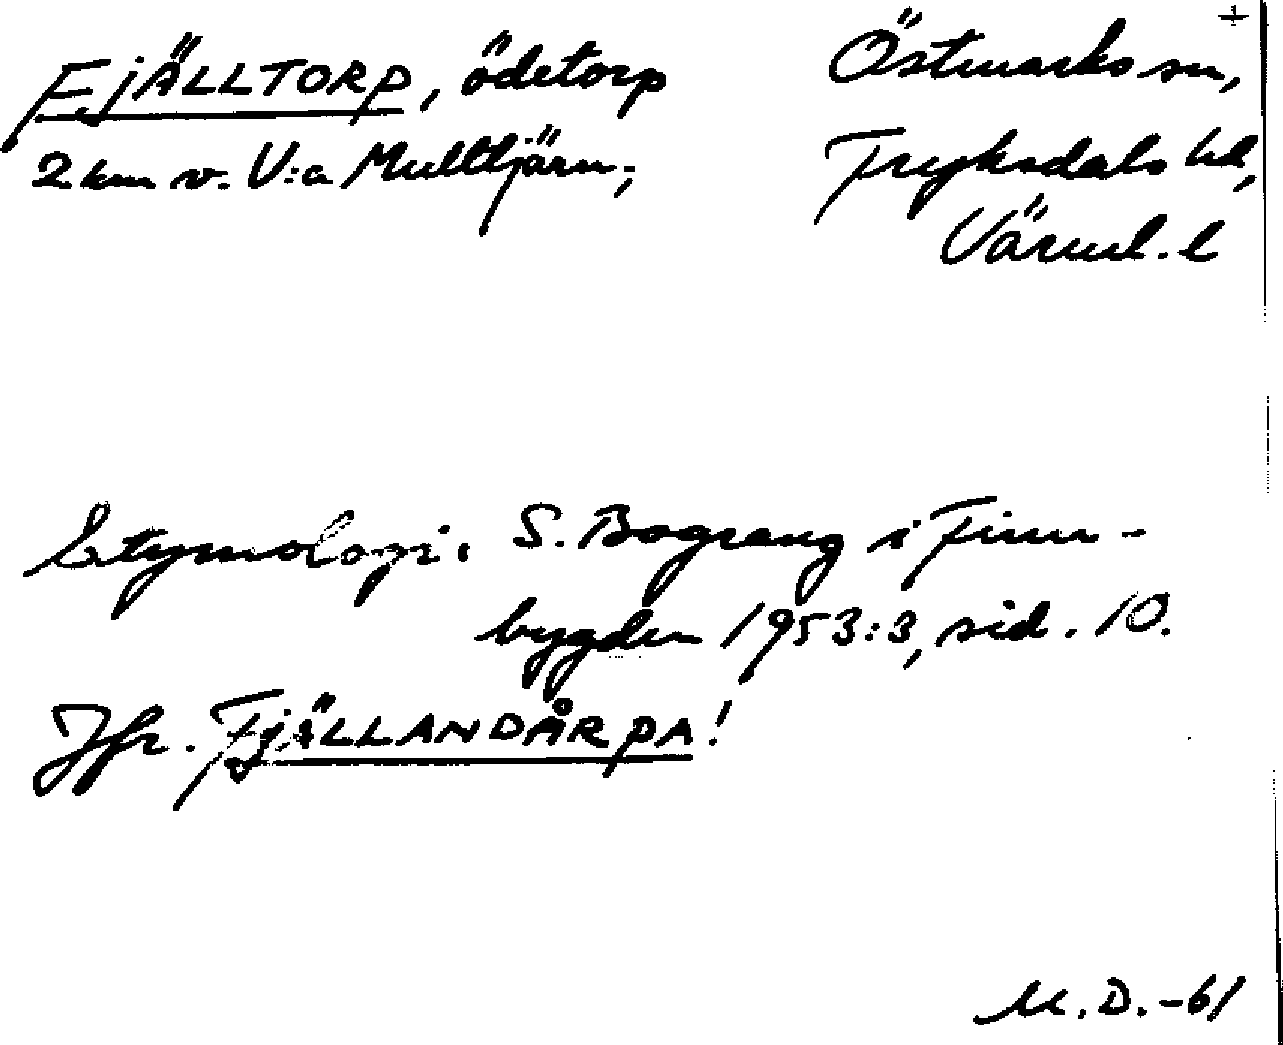 FjÄLLTORP, ödetorp
2 km v. V:a Mulltjärn;
Östmarks sn,
Fryksdals hd,
Värml. l
Etymologi: S. Bograng i Finn-
bygden 1953:3, sid. 10.
Jfr. FjÄLLANDÅRPA!
M.D. -61